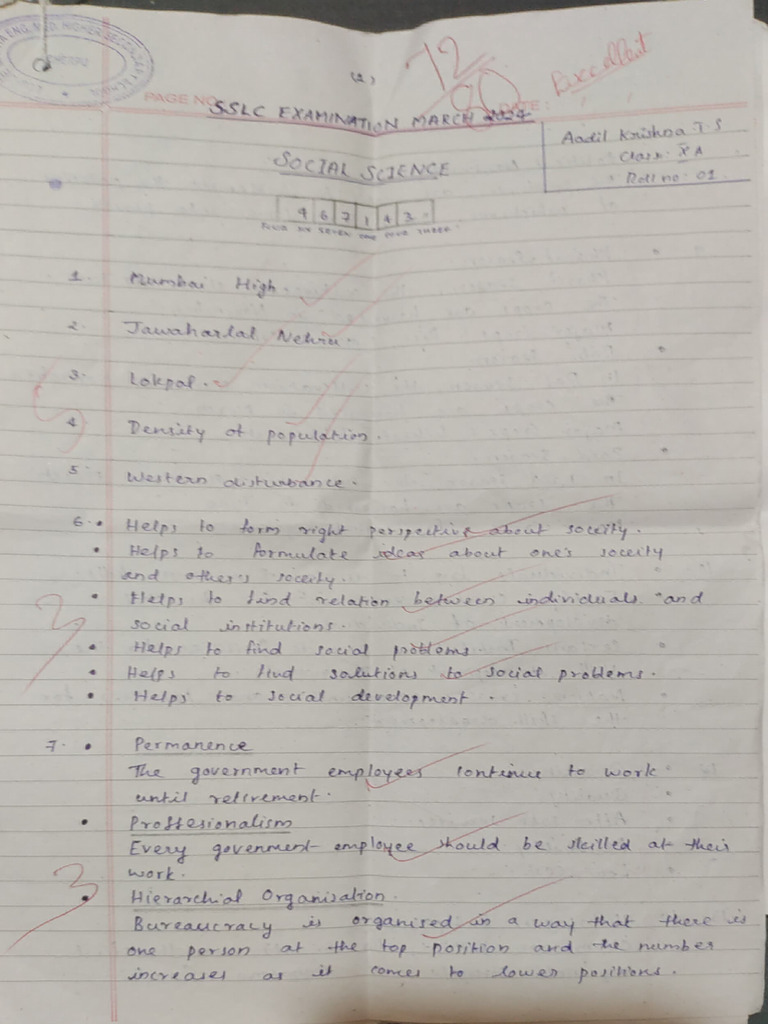 (1)
72
80
Excellent
PAGE NO
DATE:
SSLC EXAMINATION MARCH 2024
Aadil Krishna T.S
Class: X A
Roll no: 01
SOCIAL SCIENCE
4 6 7 1 4 3
FOUR SIX SEVEN ONE FOUR THREE
1. Mumbai High.
2. Jawaharlal Nehru.
3. Lokpal.
4. Density of population.
5. Western disturbance.
5
6. • Helps to form right perspective about soceity.
• Helps to formulate ideas about one's soceity
and other's soceity.
• Helps to find relation between individuals and
social institutions.
3
• Helps to find social problems
• Helps to find solutions to social problems.
• Helps to social development.
7. • Permanence
The government employees continue to work
until retirement.
• Proffesionalism
Every govenment employee should be skilled at their
work.
3
• Hierarchial Organisation.
Bureaucracy is organised in a way that there is
one person at the top position and the number
increases as it comes to lower positions.